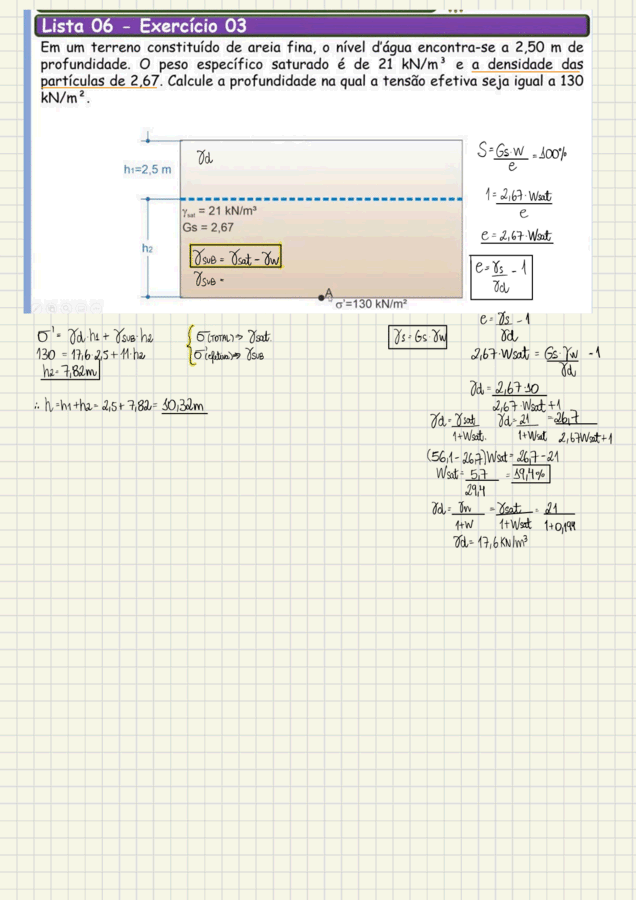 Lista 06 - Exercício 03
Em um terreno constituído de areia fina, o nível d'água encontra-se a 2,50 m de
profundidade. O peso específico saturado é de 21 kN/m³ e a densidade das
partículas de 2,67. Calcule a profundidade na qual a tensão efetiva seja igual a 130
kN/m².
γd
h1=2,5 m
γsat = 21 kN/m³
Gs = 2,67
h2
γSUB = γsat - γw
γSUB =
A
σ'=130 kN/m²
S = Gs·w / e = 100%
1 = 2,67·Wsat / e
e = 2,67·Wsat
e = γs / γd - 1
σ' = γd·h1 + γSUB·h2
130 = 17,6·2,5 + 11·h2
h2 = 7,82m
σ(TOTAL) => γsat
σ'(efetiva) => γSUB
∴ h = h1+h2 = 2,5 + 7,82 = 10,32m
γs = Gs·γw
e = γs / γd - 1
2,67·Wsat = Gs·γw / γd - 1
γd = 2,67·10 / 2,67·Wsat + 1
γd = γsat / 1+Wsat. γd = 21 / 1+Wsat = 26,7 / 2,67Wsat+1
(56,1-26,7)Wsat = 26,7-21
Wsat = 5,7 / 29,4 = 19,4%
γd = γn / 1+W = γsat / 1+Wsat = 21 / 1+0,194
γd = 17,6 KN/m³